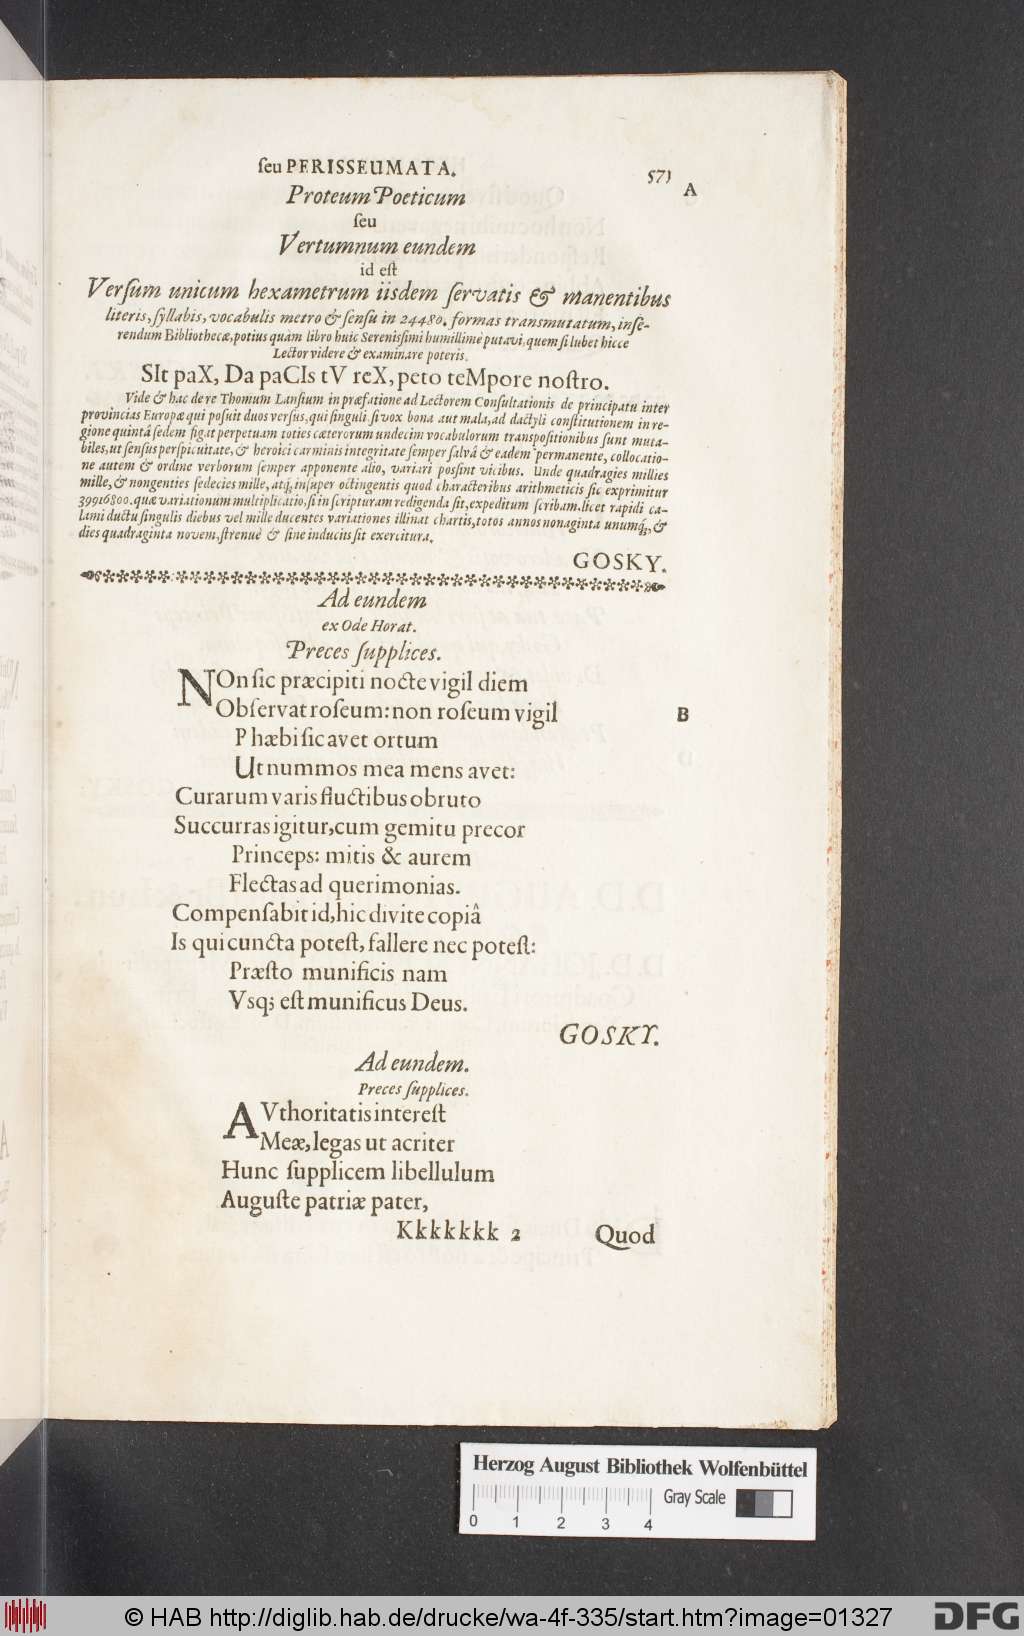 ſeu PERISSEUMATA.
571
A
Proteum Poeticum
ſeu
Vertumnum eundem
id eſt
Verſum unicum hexametrum iisdem ſervatis & manentibus
literis, ſyllabis, vocabulis metro & ſenſu in 24480. formas transmutatum, inſe-
rendum Bibliothecæ, potius quàm libro huic Sereniſſimi humillimè putavi, quem ſi lubet hicce
Lector videre & examinare poteris.
SIt paX, Da paCIs tV reX, peto teMpore noſtro.
Vide & hac de re Thomum Lanſium in præfatione ad Lectorem Conſultationis de principatu inter
provincias Europæ qui poſuit duos verſus, qui ſinguli, ſi vox bona aut mala, ad dactyli conſtitutionem in re-
gione quintâ ſedem figat perpetuam toties cæterorum undecim vocabulorum transpoſitionibus ſunt muta-
biles, ut ſenſus perſpicuitate, & heroici carminis integritate ſemper ſalvâ & eadem permanente, collocatio-
ne autem & ordine verborum ſemper apponente alio, variari poſſint vicibus. Unde quadragies millies
mille, & nongenties ſedecies mille, atq; inſuper octingentis quod characteribus arithmeticis ſic exprimitur
39916800. quæ variationum multiplicatio, ſi in ſcripturam redigenda ſit, expeditum ſcribam, licet rapidi ca-
lami ductu ſingulis diebus vel mille ducentes variationes illinat chartis, totos annos nonaginta unumq;, &
dies quadraginta novem, ſtrenuè & ſine induciis ſit exercitura.
GOSKY.
Ad eundem
ex Ode Horat.
Preces ſupplices.
NOn ſic præcipiti nocte vigil diem
Obſervat roſeum: non roſeum vigil
B
Phæbi ſic avet ortum
Ut nummos mea mens avet:
Curarum variis fluctibus obruto
Succurras igitur, cum gemitu precor
Princeps: mitis & aurem
Flectas ad querimonias.
Compenſabit id, hic divite copiâ
Is qui cuncta poteſt, fallere nec poteſt:
Præſto munificis nam
Vsq; eſt munificus Deus.
GOSKY.
Ad eundem.
Preces ſupplices.
AVthoritatis intereſt
Meæ, legas ut acriter
Hunc ſupplicem libellulum
Auguſte patriæ pater,
Kkkkkkk 2
Quod
Herzog August Bibliothek Wolfenbüttel
Gray Scale
0 1 2 3 4
© HAB http://diglib.hab.de/drucke/wa-4f-335/start.htm?image=01327
DFG